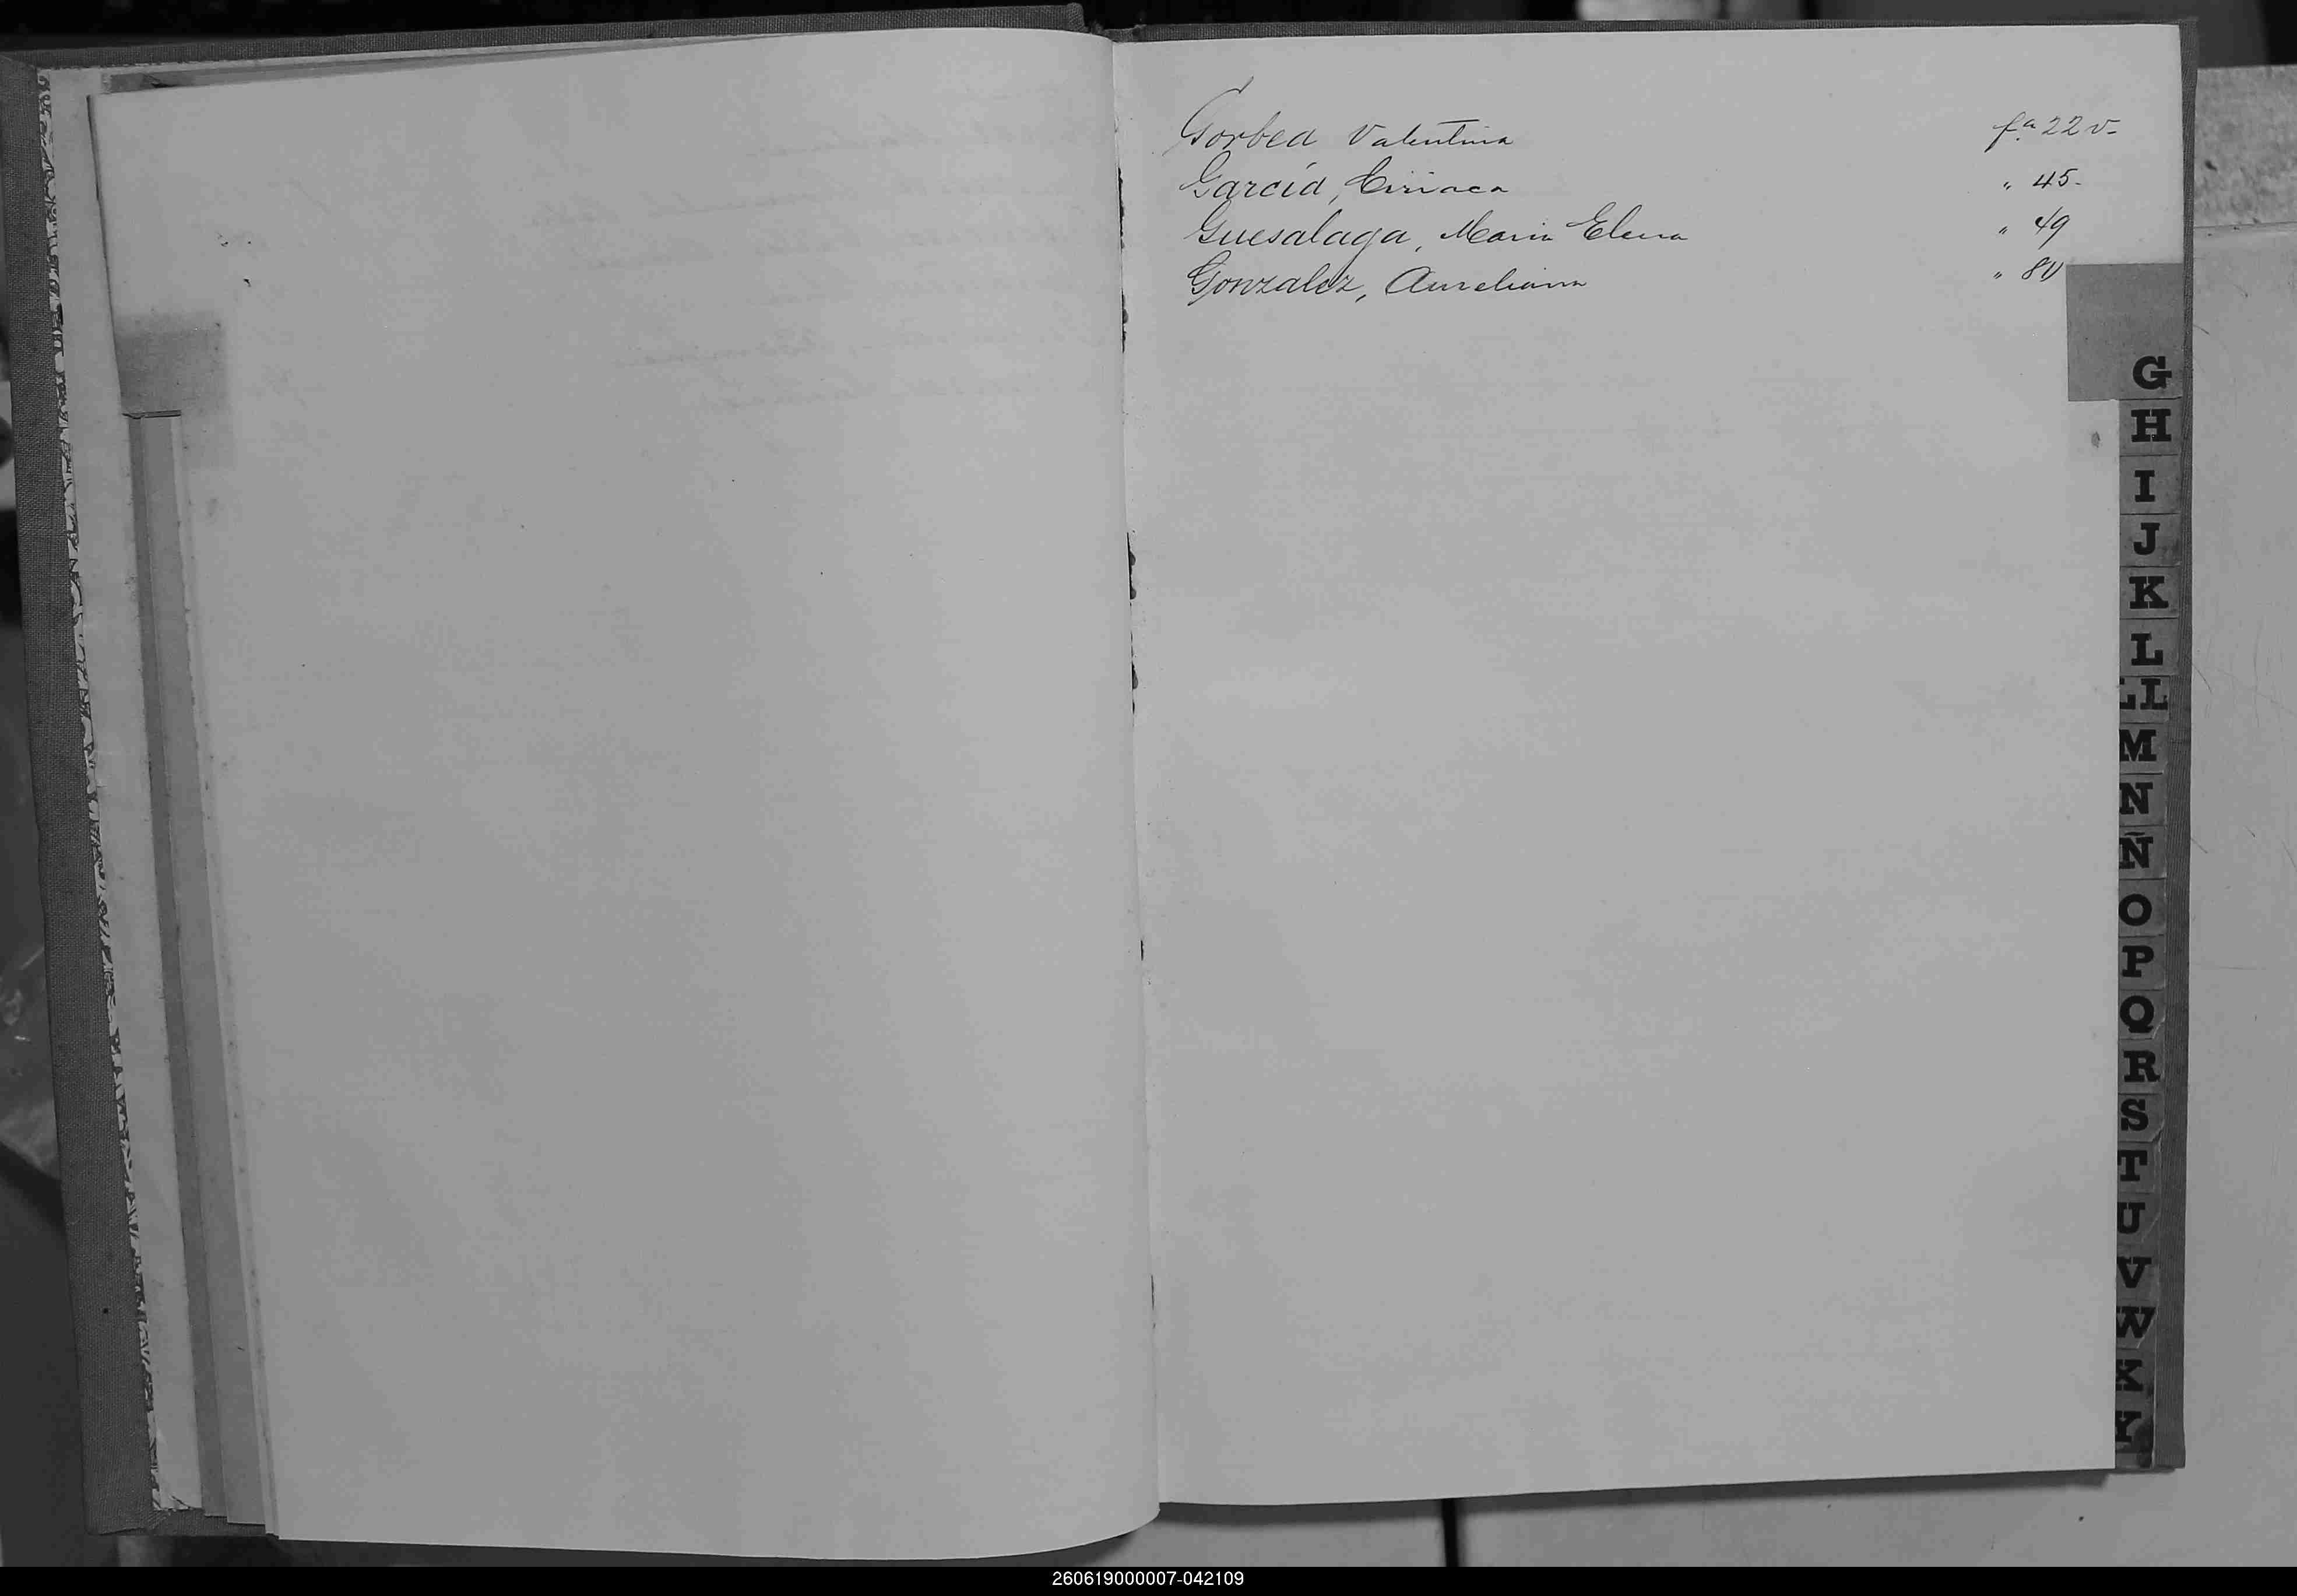 Gorbea Valentina fª 22 v-
García, Ciriaca " 45-
Guesalaga, Maria Elena " 49
Gonzalez, Aureliana "
G
H
I
J
K
L
LL
M
N
Ñ
O
P
Q
R
S
T
U
V
W
X
Y
260619000007-042109